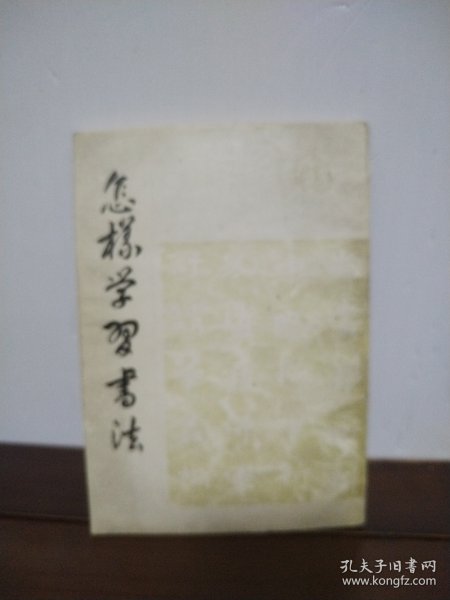 怎樣学習書法
孔夫子旧書网
www.kongfz.com